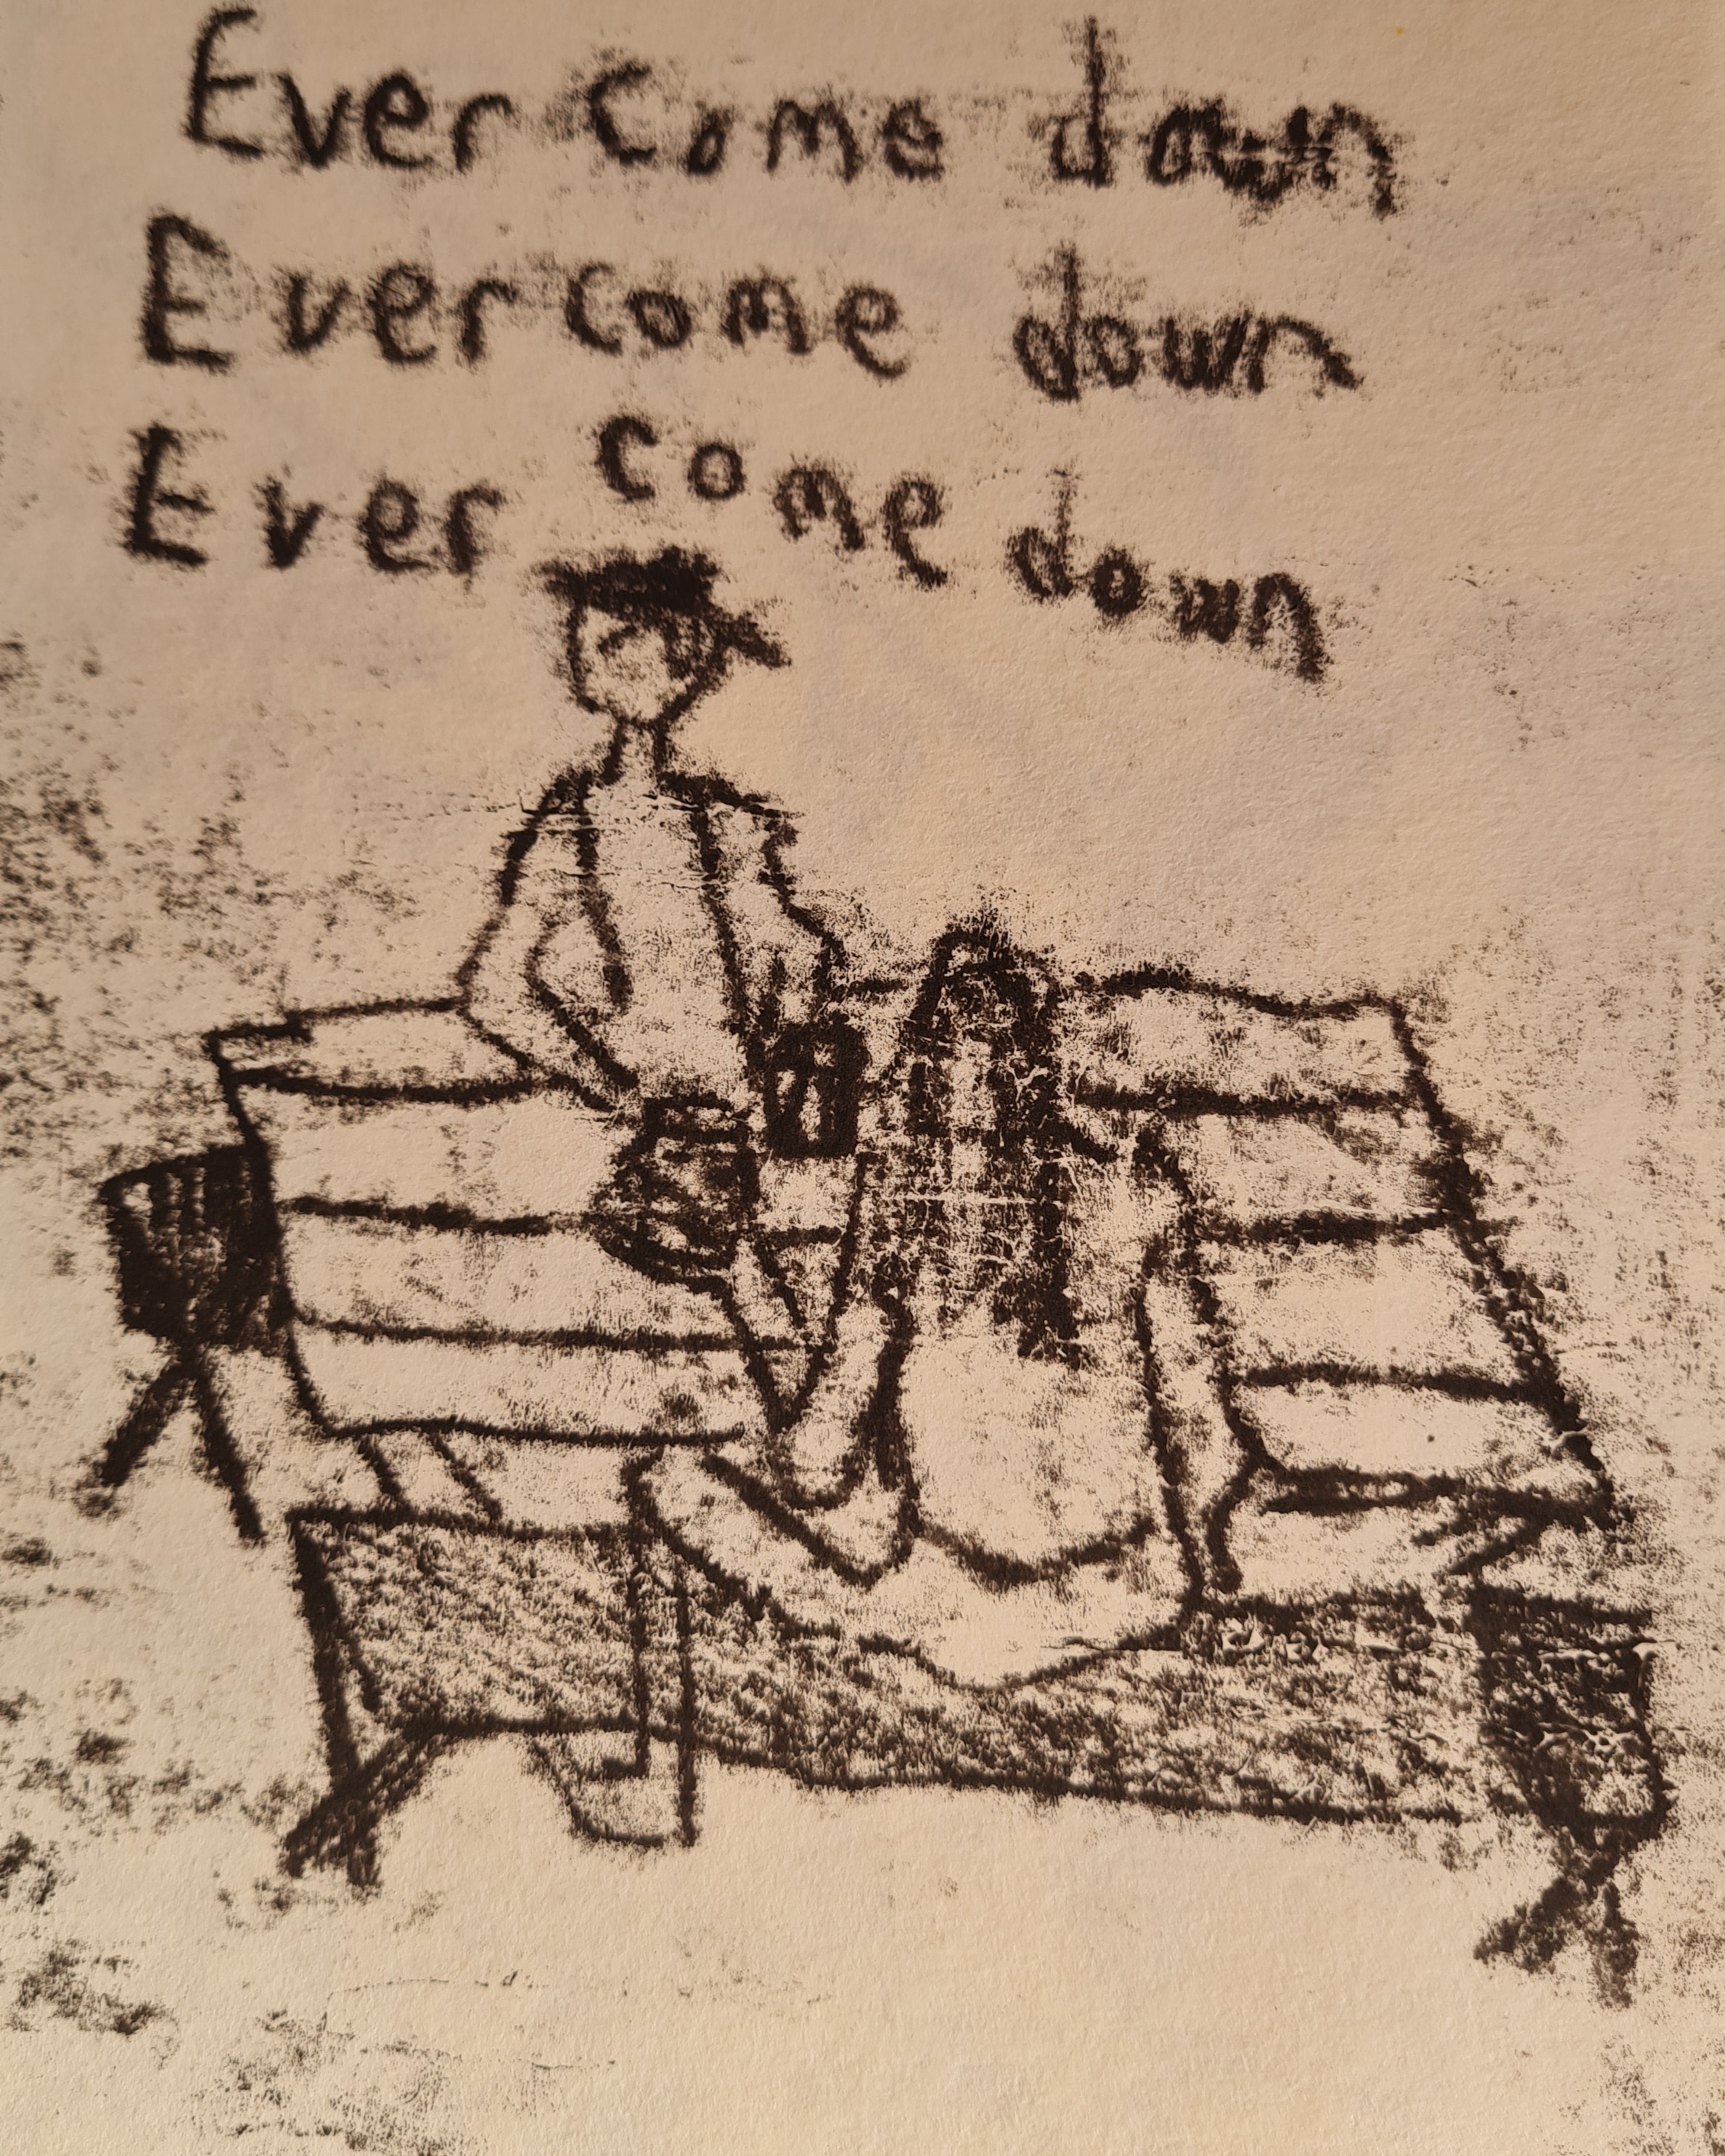 Ever Come down
Ever come down
Ever come down